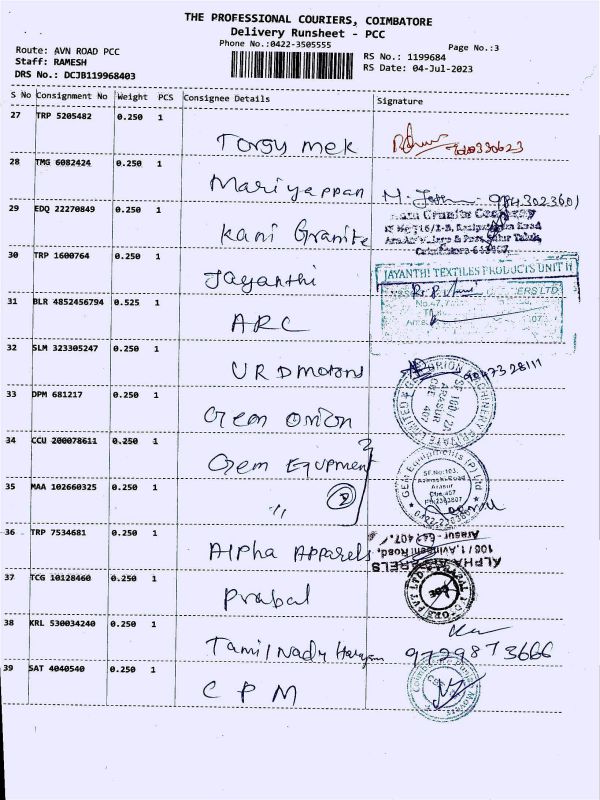 THE PROFESSIONAL COURIERS, COIMBATORE
Delivery Runsheet - PCC
Phone No.:0422-3505555
Page No.:3
Route: AVN ROAD PCC
Staff: RAMESH
DRS No.: DCJB119968403
RS No.: 1199684
RS Date: 04-Jul-2023
S No Consignment No Weight PCS Consignee Details Signature
27 TRP 5205482 0.250 1
Torgy mek
28 TMG 6082424 0.250 1
Mariyappan
29 EDQ 22270849 0.250 1
Kani Granite
30 TRP 1600764 0.250 1
Jayanthi
JAYANTHI TEXTILES PRODUCTS UNIT II
31 BLR 4852456794 0.525 1
ARC
32 SLM 323305247 0.250 1
URD motors
33 DPM 681217 0.250 1
Gem orion
34 CCU 200078611 0.250 1
Gem Equpment
GEM Equipments (P) Ltd
SF.No:103,
Avanashi Road
Arasur
35 MAA 102660325 0.250 1
" (2)
36 TRP 7534681 0.250 1
Alpha Apparels
ALPHA APPARELS
100/1, Avinashi Road,
Arasur - 641 407.
37 TCG 10128460 0.250 1
Prabal
38 KRL 530034240 0.250 1
Tamil Nadu
9729873666
39 SAT 4040540 0.250 1
C P M